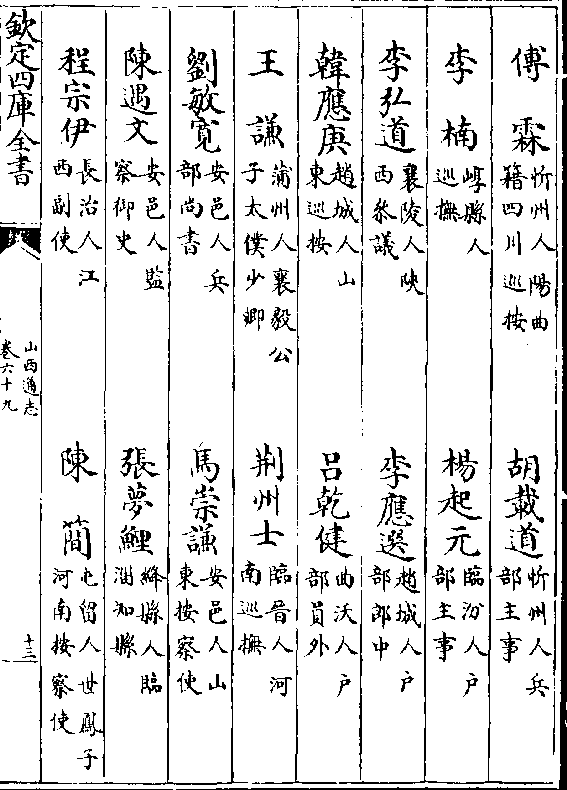 傅霖忻州人陽曲籍四川巡按
胡載道忻州人兵部主事
李楠崞縣人巡撫
楊起元臨汾人户部主事
李弘道襄陵人陜西叅議
李應選趙城人户部郎中
韓應庚趙城人山東巡按
吕乾健曲沃人户部員外
王謙蒲州人襄毅公子太僕少卿
荆州士臨晉人河南巡撫
劉敏寛安邑人兵部尚書
馬崇謙安邑人山東按察使
陳遇文安邑人監察御史
張夢鯉絳縣人臨潤知縣
程宗伊長治人江西副使
陳簡屯留人世鳳子河南按察使
欽定四庫全書
山西通志
卷六十九
十三